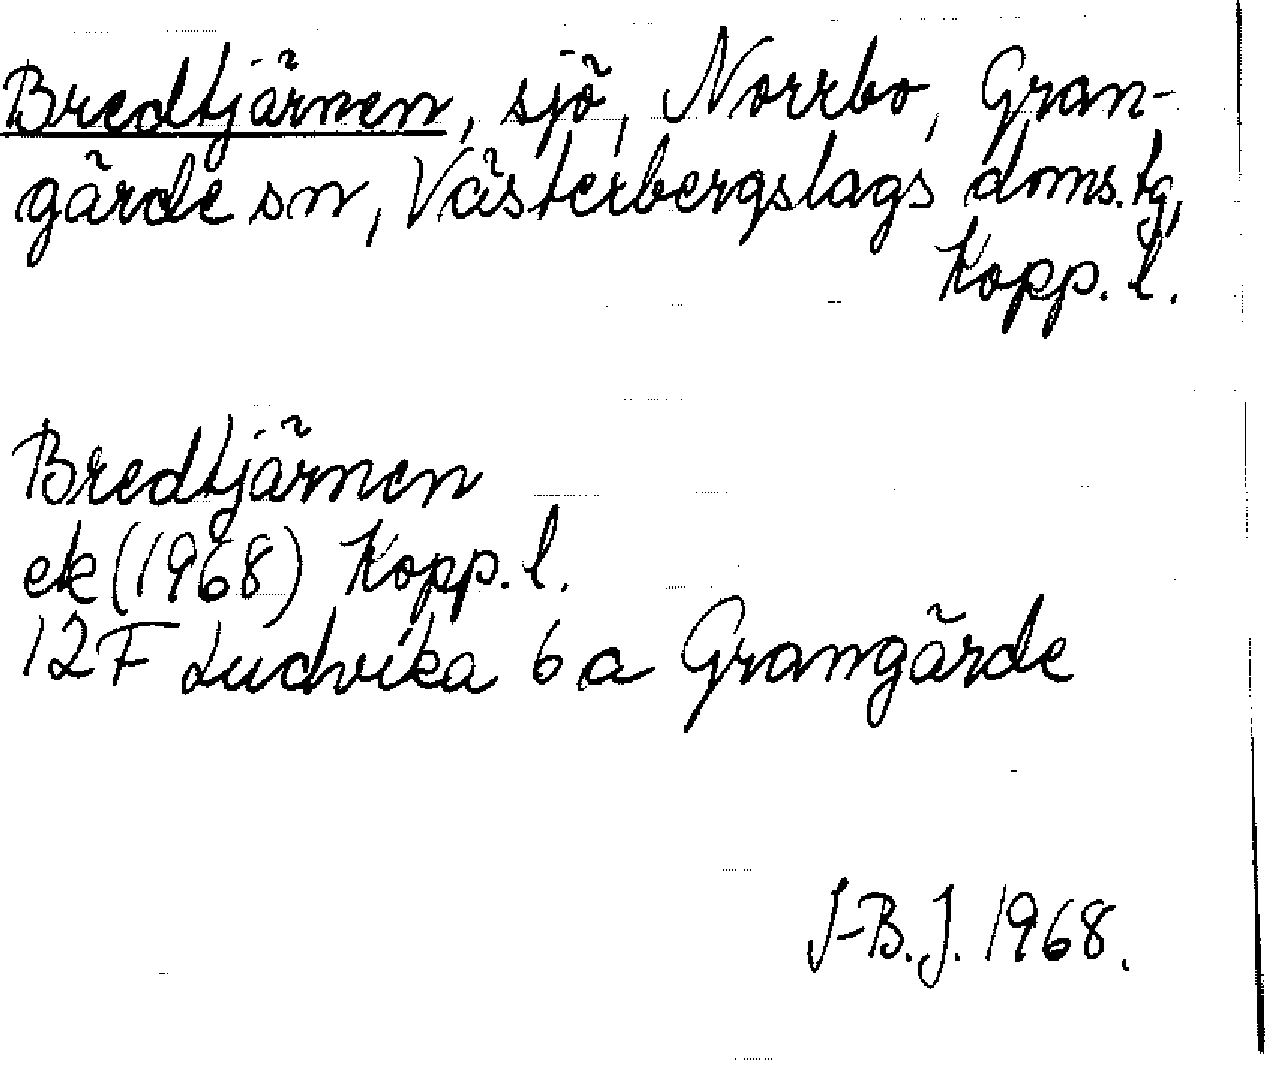 Bredtjärnen, sjö, Norrbo, Gran-
gärde sn, Västerbergslags doms. tg,
Kopp. l.
Bredtjärnen
ek (1968) Kopp. l.
12F Ludvika 6 a Grangärde
I-B.J. 1968.